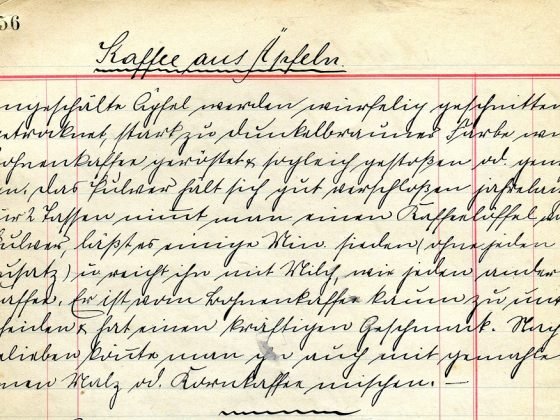 56
Kaffee aus Äpfeln.
ngeschälte Äpfel werden würfelig geschnitten
etrocknet, stark zu dunkelbrauner Farbe wi
ohnenkaffee geröstet & sogleich gestoßen od. gem
en. Das Pulver hält sich gut verschloßen jahrelan
ür 2 Tassen nimmt man einen Kaffeelöffel
ulver, läßt es einige Min. sieden (ohne jeden
usatz) u. reicht ihn mit Milch, wie jeden ander
affee. Er ist vom Bohnenkaffee kaum zu unt
heiden & hat einen kräftigen Geschmack. Nach
elieben könnte man ihn auch mit gemahle
enen Malz od. Kornkaffee mischen. —